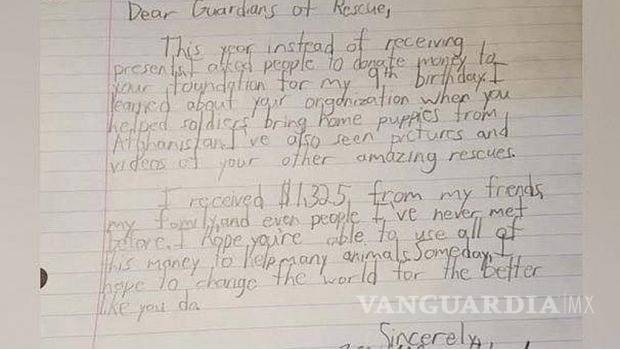 Dear Guardians of Rescue,
This year instead of receiving
presents I asked people to donate money to
your foundation for my 9th birthday. I
learned about your organization when you
helped soldiers bring home puppies from
Afghanistan. I've also seen pictures and
videos of your other amazing rescues.
I received $1,325 from my friends,
my family, and even people I've never met
before. I hope you're able to use all of
this money to help many animals. Someday, I
hope to change the world for the better
like you do.
VANGUARDIA MX
Sincerely,